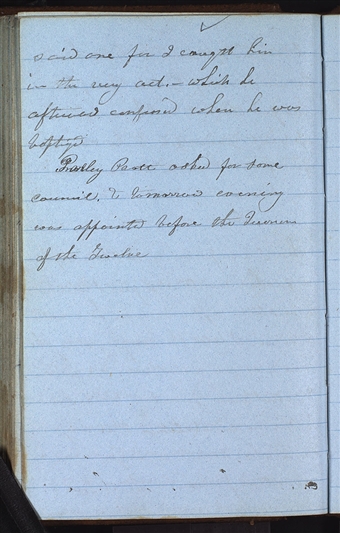 said one for I caught him
in the very act. - which he
afterward confessed when he was
baptized
Parley Pratt asked for some
council. & tomorrow evening
was appointed before the Quorum
of the Twelve